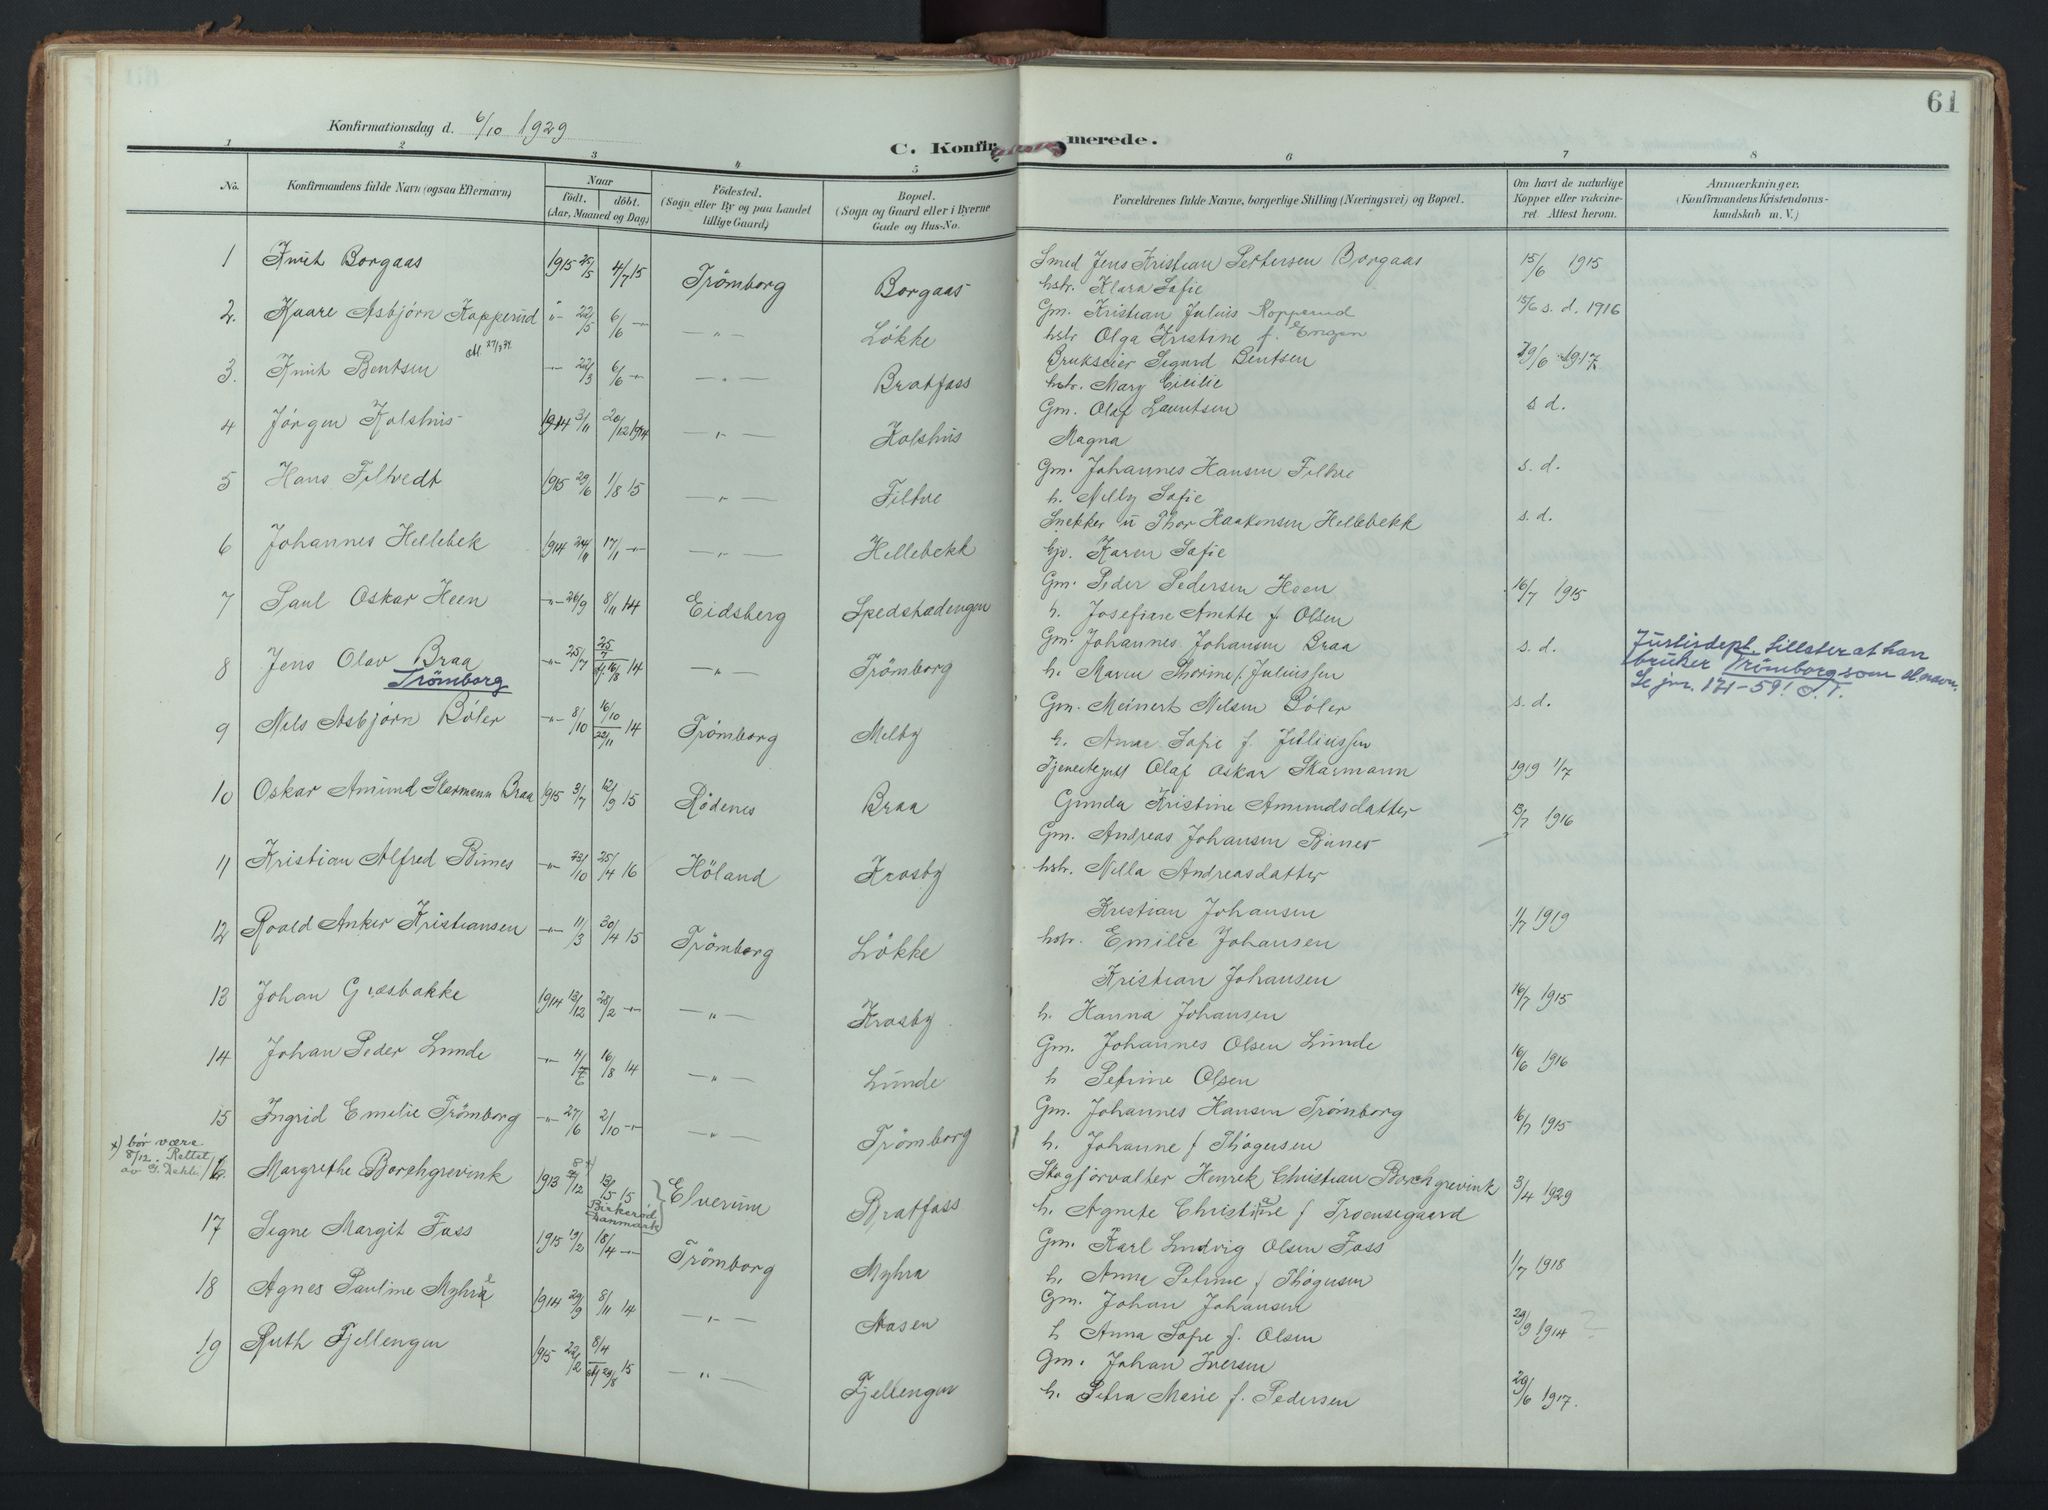 61
Konfirmationsdag d. 6/10 1929
C. Konfirmerede.
1 2 3 4 5 6 7 8
No.
Konfirmandens fulde Navn (ogsaa Efternavn)
Naar
födt. döbt.
(Aar, Maaned og Dag)
Födested.
(Sogn eller By og paa Landet
tillige Gaard)
Bopæl.
(Sogn og Gaard eller i Byerne
Gade og Hus-No.
Forældrenes fulde Navne, borgerlige Stilling (Næringsvei) og Bopæl.
Om havt de naturlige
Kopper eller vakcine-
ret. Attest herom.
Anmærkninger.
(Konfirmandens Kristendoms-
kundskab m. V.)
1 Knut Borgaas 1915 25/5 4/7 15 Trömborg Borgaas Smed Jens Kristian Pettersen Borgaas 15/6 1915
hstr. Klara Sofie
2. Kaare Asbjörn Kopperud -"- 22/5 6/6 -"- -"- Lökke Gm. Kristian Julius Kopperud 15/6 s. d. 1916
hstr Olga Kristine f. Engen
3. Knut Bentsen -"- 22/3 6/6 -"- -"- Bratfoss Brukseier Sigurd Bentsen 29/6 1917
hstr. Mary Cicilie
4 Jörgen Kolshus 1914 3/11 20/12 1914 -"- Kolshus Gm. Olaf Lauritsen s d.
Magna
5 Hans Filtvedt 1915 29/6 1/8 15 -"- Filtve Gm. Johannes Hansen Filtve s. d.
h. Nelly Sofie
6 Johannes Hellebek 1914 24/11 17/1 -"- -"- Hellebekk Snekker Thor Haakonsen Hellebekk s. d.
Karen Sofie
7 Paul Oskar Heen -"- 26/9 8/11 14 Eidsberg Spedstadengen Gm. Peder Pedersen Heen 16/7 1915
h. Josefine Anette f. Olsen
8 Jens Olav Braa -"- 25/7 25/7 16/8 14 -"- Trömborg Gm. Johannes Johansen Braa s. d.
Trömborg
h. Maren Thorine f. Juliussen
Justisdept. tillater at han
bruker Trömborg som sl.navn.
Se jnr. 171-59!
9 Nils Asbjörn Böler -"- 8/10 16/10 22/11 14 Trömborg Melby Gm. Meinert Nilsen Böler s. d.
h. Anna Sofie f. Juliussen
10 Oskar Amund Skarmann Braa 1915 3/7 12/9 15 Rödenes Braa Tjenestegutt Olaf Oskar Skarmann 1919 1/7
Gunda Kristine Amundsdatter
11 Kristian Alfred Bunes -"- 23/10 25/4 16 Höland Krosby Gm. Andreas Johansen Bunes 13/7 1916
hstr. Nilla Andreasdatter
12 Roald Anker Kristiansen -"- 11/3 30/4 15 Trömborg Lökke Kristian Johansen 1/7 1919
hstr. Emilie Johansen
13 Johan Græsbakke 1914 13/12 28/2 -"- -"- Krosby Kristian Johansen 16/7 1915
h. Hanna Johansen
14 Johan Peder Lunde -"- 16/8 14 -"- Lunde Gm. Johannes Olsen Lunde 16/6 1916
h Petrine Olsen
15 Ingrid Emelie Trömborg -"- 27/6 2/10 -"- -"- Trömborg Gm. Johannes Hansen Trömborg 16/7 1915
h. Johanne f Thögersen
x) bör være
8/12. Rettet
av
16. Margrethe Borchgrevink 1913 8/12 x) 13/5 15 Elverum Bratfoss Skogforvalter Henrik Christian Borchgrevink 3/4 1929
Birkeröd
Danmark
h. Agnete Christine f Troensegaard
17 Signe Margit Foss 1915 19/2 18/4 -"- Trömborg Myhra Gm. Karl Ludvig Olsen Foss 1/7 1918
h. Anna Petrine f Thögersen
18 Agnes Pauline Myhra 1914 29/9 8/11 14 -"- Aasen Gm. Johan Johansen 29/9 1914 ?
h Anna Sofie f. Olsen
19 Ruth Fjellengen 1915 22/2 8/4 29/8 15 -"- Fjellengen Gm. Johan Iversen 29/6 1917.
h. Petra Marie f. Pedersen